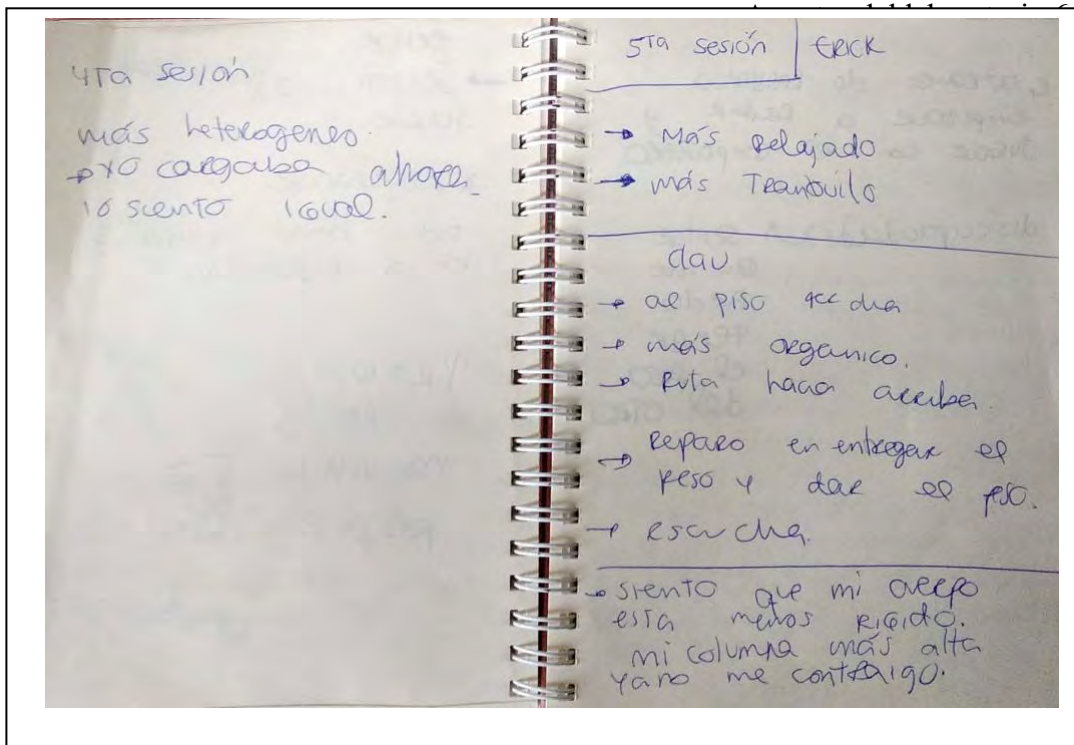 4Ta sesión
más heterogeneo.
→ yo cargaba ahora
lo siento igual.
5Ta sesión | ERICK
→ Más Relajado
→ más Tranquilo
clau
→ al piso
→ más organico.
→ Ruta hacia arriba.
→ Reparo en entregar el
peso y dar el peso.
→ escucha.
→ siento que mi cuerpo
esta menos Rigido.
mi columna más alta
ya no me contraigo.